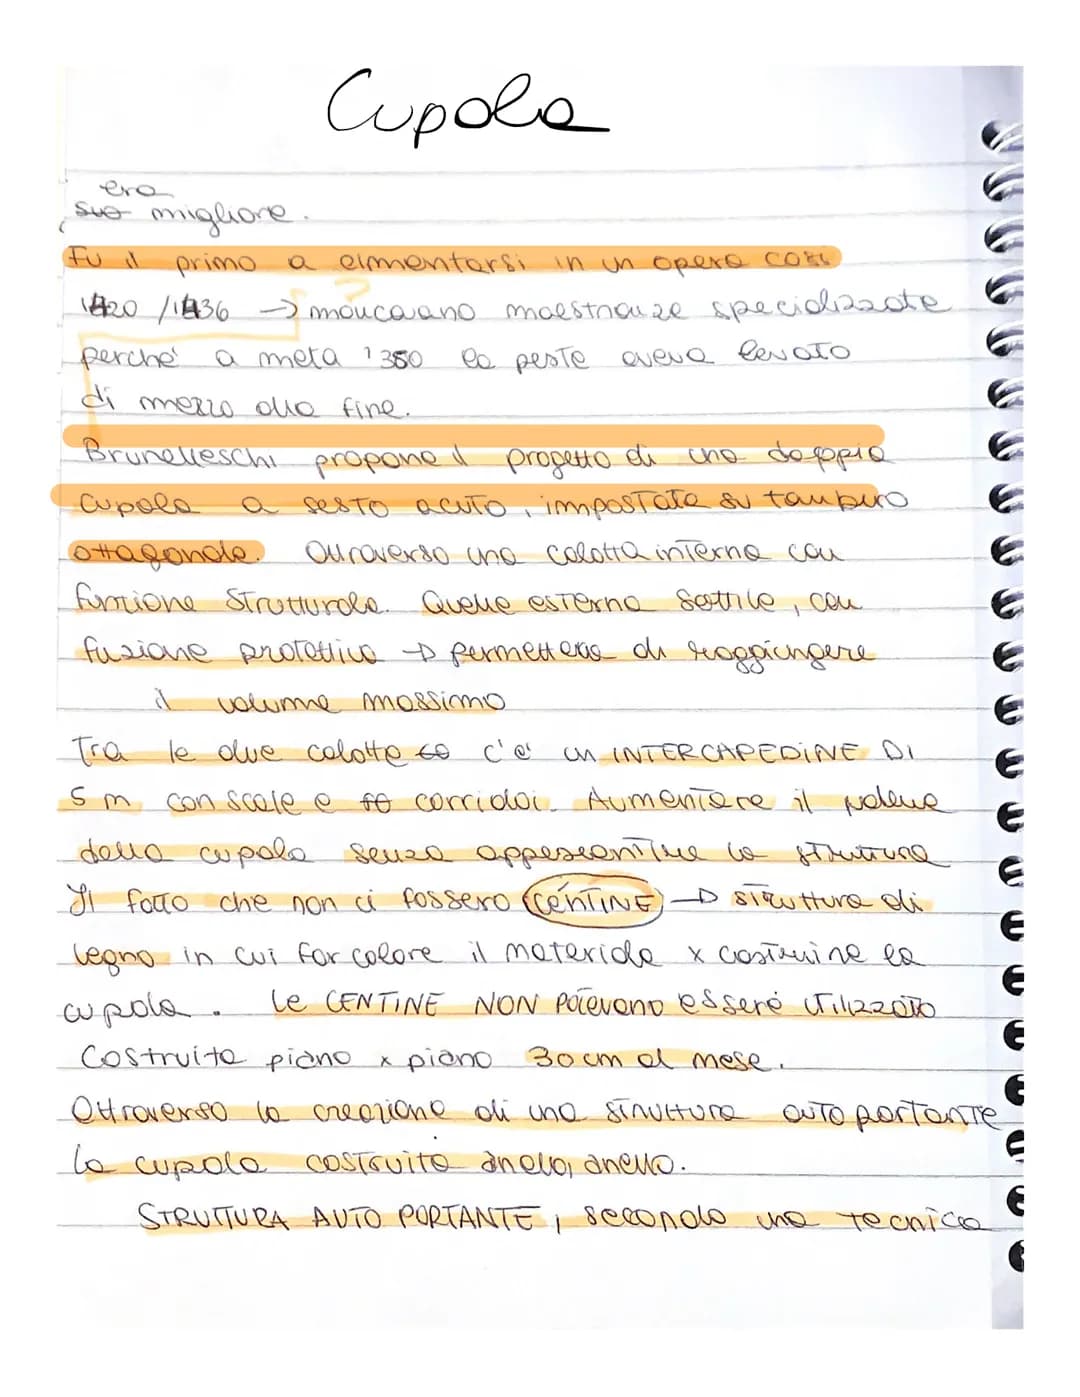 Cupola
era
suo migliore.
Fu il primo a cimentarsi in un opera così
1420 /1436 → moucavano maestrauze specializzate
perche' a metà 1350 la peste aveva levato
di mezzo alla fine.
Brunelleschi propone il progetto di una doppia
Cupola a sesto acuto, impostata su tamburo
ottagonale. Attraverso una calotta interna con
funzione strutturale. Quelle esterna sottile, con
fuzione protettiva → permetteva di raggiungere
il volume massimo
Tra le due calotte c'e' un INTERCAPEDINE DI
5 m con scale e corridoi. Aumentare il volume
della cupola senza appesantire la struttura
Il fatto che non ci fossero CENTINE → struttura di
legno in cui far colare il materiale x costruire la
cupola. Le CENTINE NON Potevano essere utilizzato
Costruita piano x piano 30 cm al mese.
Attraverso la creazione di una struttura auto portante
la cupola costruita anello, anello.
STRUTTURA AUTO PORTANTE, secondo una tecnica